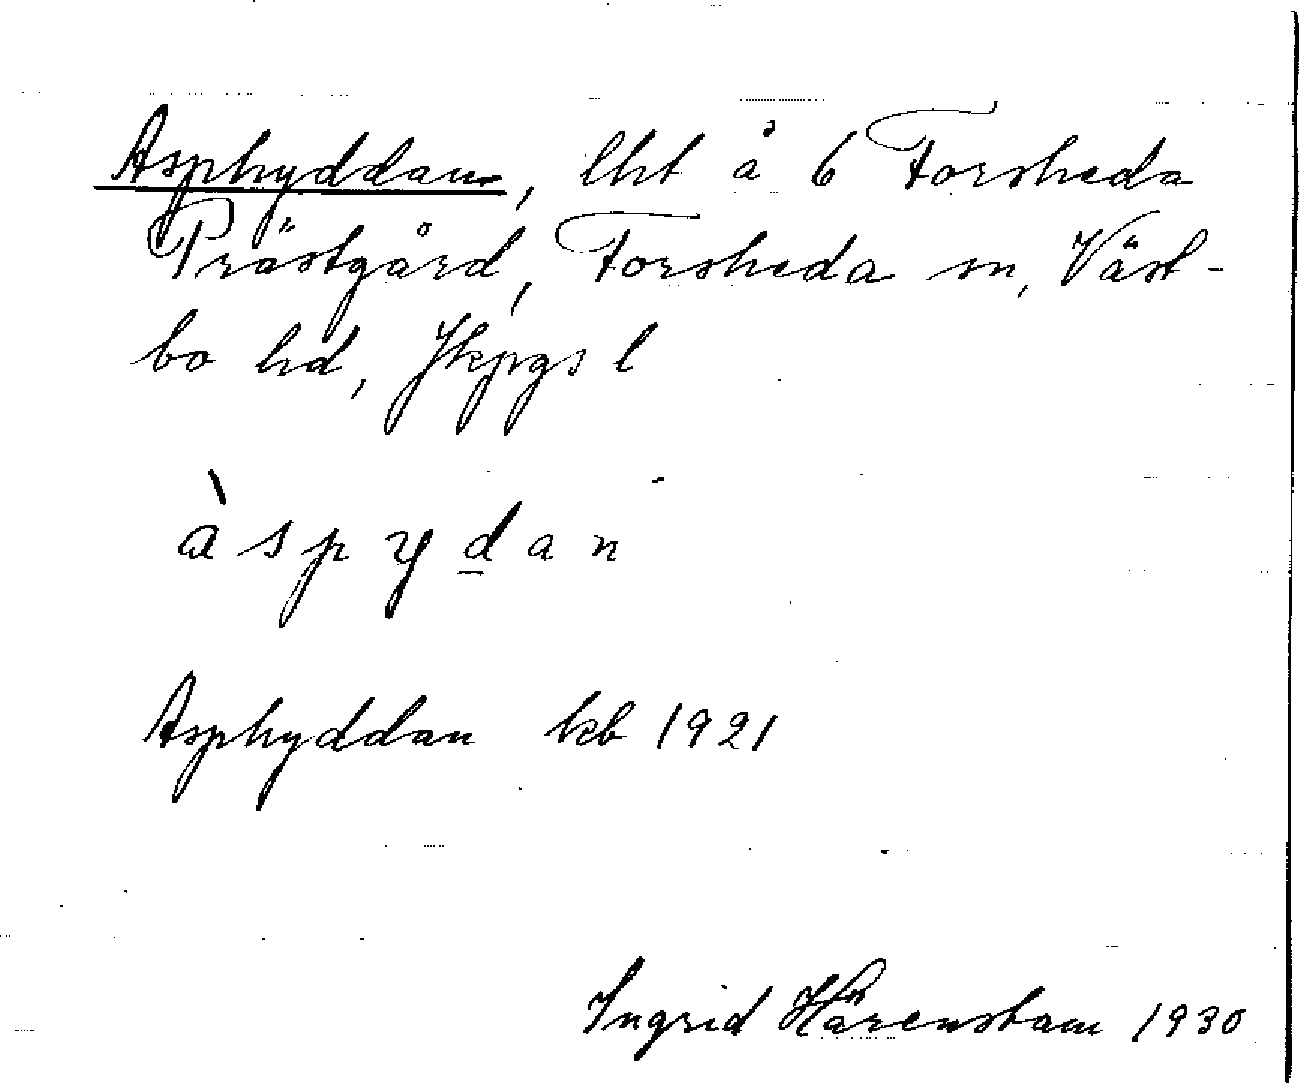 Asphyddan, lht å 6 Forsheda
Prästgård, Forsheda sn, Väst-
bo hd, Jkpgs l
àspyd̲an
Asphyddan kb 1921
Ingrid Härenstam 1930